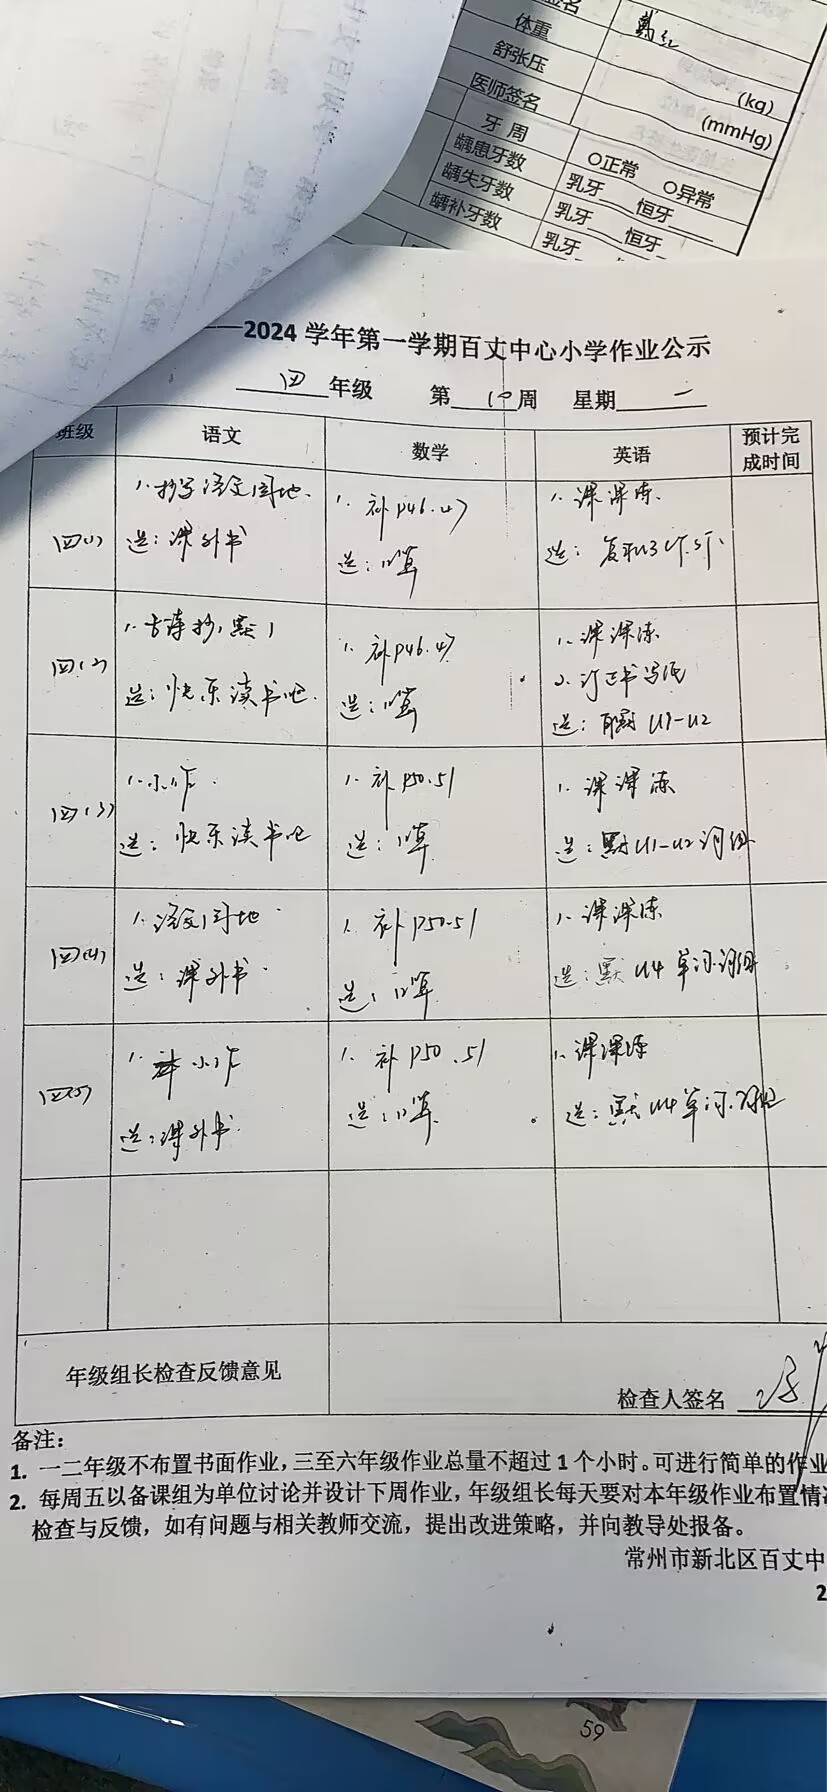 签名
戴红
体重
(kg)
舒张压
(mmHg)
医师签名
牙周
○正常 ○异常
龋患牙数
乳牙 恒牙
龋失牙数
乳牙 恒牙
龋补牙数
乳牙
——2024 学年第一学期百丈中心小学作业公示
四 年级 第 10 周 星期 一
班级 语文 数学 英语 预计完成时间
四(1)
1.抄写语文园地.
选:课外书
1.补P46.47
选:口算
1.课课练.
四(2)
1.古诗抄1默1
选:快乐读书吧.
1.补P46.47
选:口算
1.课课练
2.订正书写纸
选: U1-U2
四(3)
1.小作.
选:快乐读书吧
1.补P50.51
选:口算
1.课课练
选:默U1-U2词组
四(4)
1.语文园地
选:课外书.
1.补P50-51
选:口算
1.课课练
选:默U4单词.词组
四(5)
1.小作
选:课外书.
1.补P50.51
选:口算.
1.课课练
选:默U4单词.词组
年级组长检查反馈意见
检查人签名
备注:
1. 一二年级不布置书面作业,三至六年级作业总量不超过 1 个小时。可进行简单的作业
2. 每周五以备课组为单位讨论并设计下周作业,年级组长每天要对本年级作业布置情
检查与反馈,如有问题与相关教师交流,提出改进策略,并向教导处报备。
常州市新北区百丈中
2
59